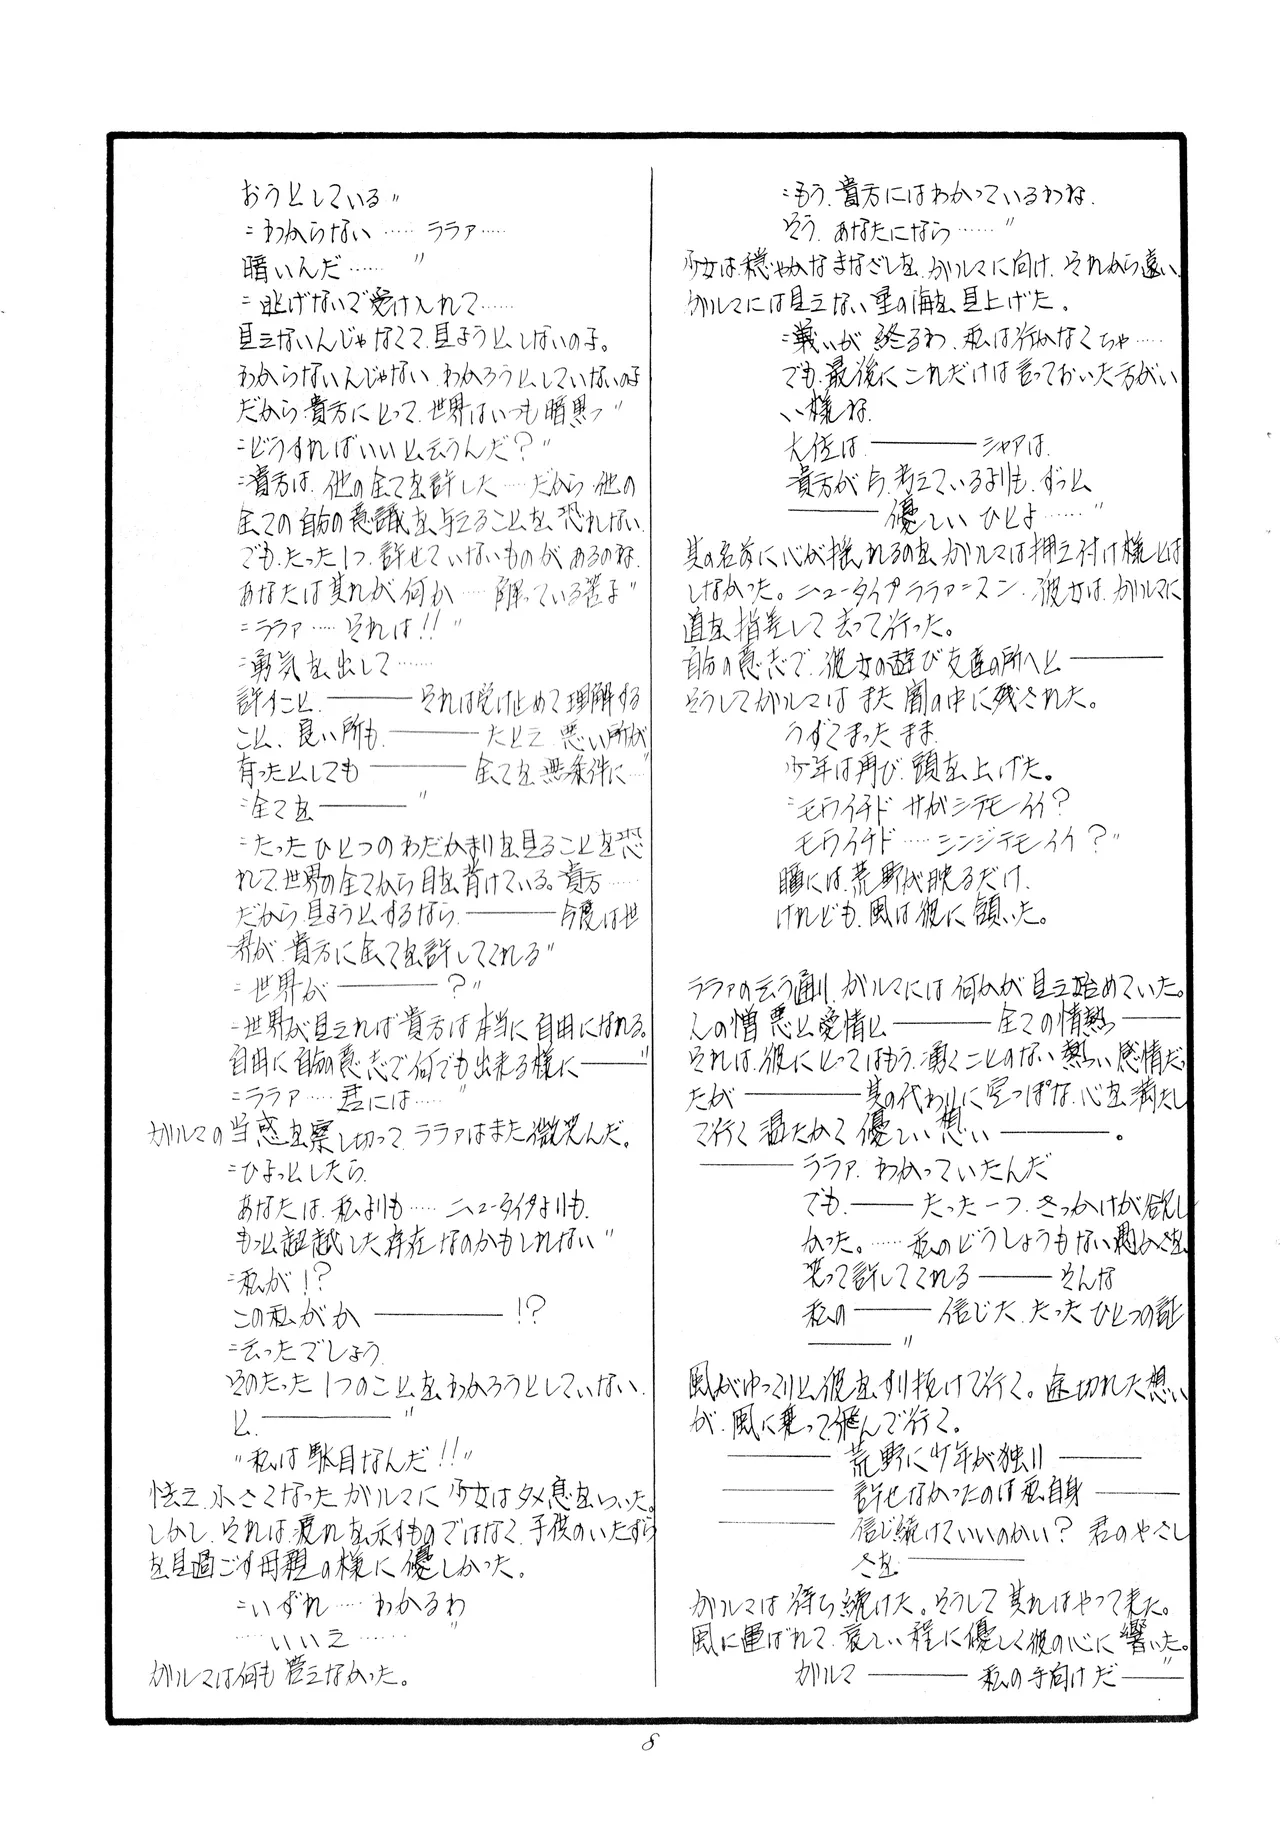 おうとしている〃
〝わからない…… ララァ……
暗いんだ……〃
〝逃げないで受け入れて……
見えないんじゃなくて、見ようとしないのよ。
わからないんじゃない、わかろうとしていないのよ
だから貴方にとって、世界はいつも暗黒っ〃
〝どうすればいいと云うんだ?〃
〝貴方は、他の全てを許した……だから他の
全ての自分の意識を与えることを恐れない、
でも、たった1つ、許せていないものがあるのね、
あなたは其れが何か……解っている筈よ〃
〝ララァ……それは!!〃
〝勇気を出して……
許すこと、――― それは受け止めて理解する
こと、良い所も、――― たとえ、悪い所が
有ったとしても ――― 全てを無条件に…〃
〝全てを ―――〃
〝たったひとつのわだかまりを見ることを恐
れて、世界の全てから目を背けている。貴方……
だから、見ようとするなら、――― 今度は世
界が、貴方に全てを許してくれる〃
〝世界が ――― ?〃
〝世界が見えれば貴方は本当に自由になれる。
自由に自分の意志で何でも出来る様に―――〃
〝ララァ……君には……〃
ガルマの当惑を察し切って、ララァはまた微笑んだ。
〝ひょっとしたら、
あなたは、私よりも……ニュータイプよりも、
もっと超越した存在なのかもしれない〃
〝私が!?
この私がか ――― !?
〝云ったでしょう、
そのたった1つのことをわかろうとしていない、
と、―――〃
〃私は駄目なんだ!!〃
怯え、小さくなったガルマに少女はタメ息をついた。
しかし、それは、疲れを示すものではなく、子供のいたずら
を見過ごす母親の様に優しかった。
〝いずれ……わかるわ
……いいえ……〃
ガルマは何も答えなかった。
〝もう、貴方にはわかっているわね、
そう、あなたになら……〃
少女は、穏やかなまなざしを、ガルマに向け、それから遠い、
ガルマには見えない星の海を見上げた。
〝戦いが終るわ、私は行かなくちゃ……
でも、最後にこれだけは言っておいた方がい
い様ね、
大佐は ――― シャアは、
貴方が今、考えているよりも、ずっと
――― 優しいひとよ……〃
其の名前に心が揺れるのを、ガルマは押え付け様とは
しなかった。ニュータイプララァ=スン、彼女は、ガルマに
道を指差して去って行った。
自分の意志で、彼女の遊び友達の所へと ―――
そうしてガルマはまた闇の中に残された。
うずくまったまま、
少年は再び、頭を上げた。
〝モウイチド サガシテモイイ?
モウイチド……シンジテモイイ?〃
瞳には、荒野が映るだけ、
けれども、風は彼に頷いた。
ララァの云う通り、ガルマには何かが見え始めていた。
人の憎悪と愛情と ――― 全ての情熱 ―――
それは、彼にとってはもう、湧くことのない熱い感情だっ
たが ――― 其の代わりに空っぽな心を満たし
て行く温たかく優しい想い ―――。
――― ララァ、わかっていたんだ
でも、――― たった一つ、きっかけが欲し
かった。……私のどうしょうもない愚かさを、
笑って許してくれる ――― そんな
私の ――― 信じた、たったひとつの証
―――〃
風がゆっくりと彼をすり抜けて行く。途切れた想い
が、風に乗って飛んで行く。
――― 荒野に少年が独り ―――
――― 許せなかったのは私自身 ―――
――― 信じ続けていいのかい? 君のやさし
さを ―――
ガルマは待ち続けた。そうして其れはやって来た。
風に運ばれて、哀しい程に優しく彼の心に響いた。
ガルマ ――― 私の手向けだ ―――〃
8